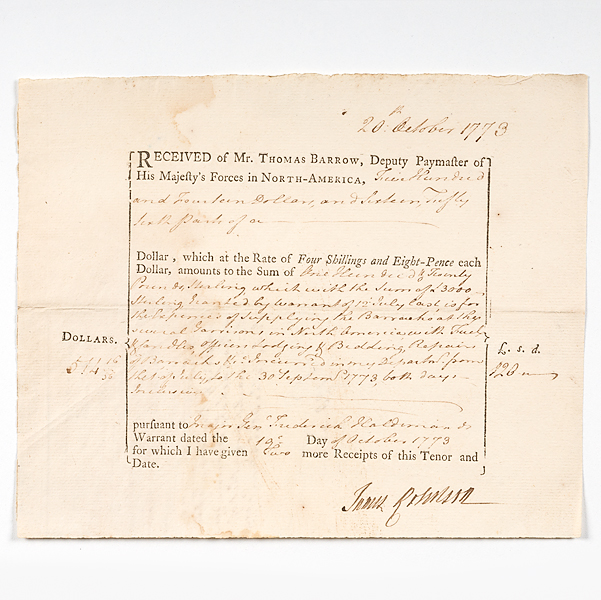 20th October 1773
RECEIVED of Mr. THOMAS BARROW, Deputy Paymaster of
His Majesty's Forces in NORTH-AMERICA, Five Hundred
and Fourteen Dollars, and Sixteen Fifty
sixth Parts of a
Dollar, which at the Rate of Four Shillings and Eight-Pence each
Dollar, amounts to the Sum of One Hundred & Twenty
Pounds Sterling which with the Sum of £3000
Sterling Granted by Warrant of 12th July last, is for
the Expences of Supplying the Barracks at the
several Garrisons in North America with Fuel
& Candles, Officers Lodging & Bedding, Repairs
of Barracks &c Incurred in my Department from
the 1st July to the 30 Septemr 1773, both days
Inclusive
DOLLARS.
514 16/56
£. s. d.
120
pursuant to Major Genl Frederick Haldimand's
Warrant dated the 19th Day of October 1773
for which I have given Two more Receipts of this Tenor and
Date.
James Robertson